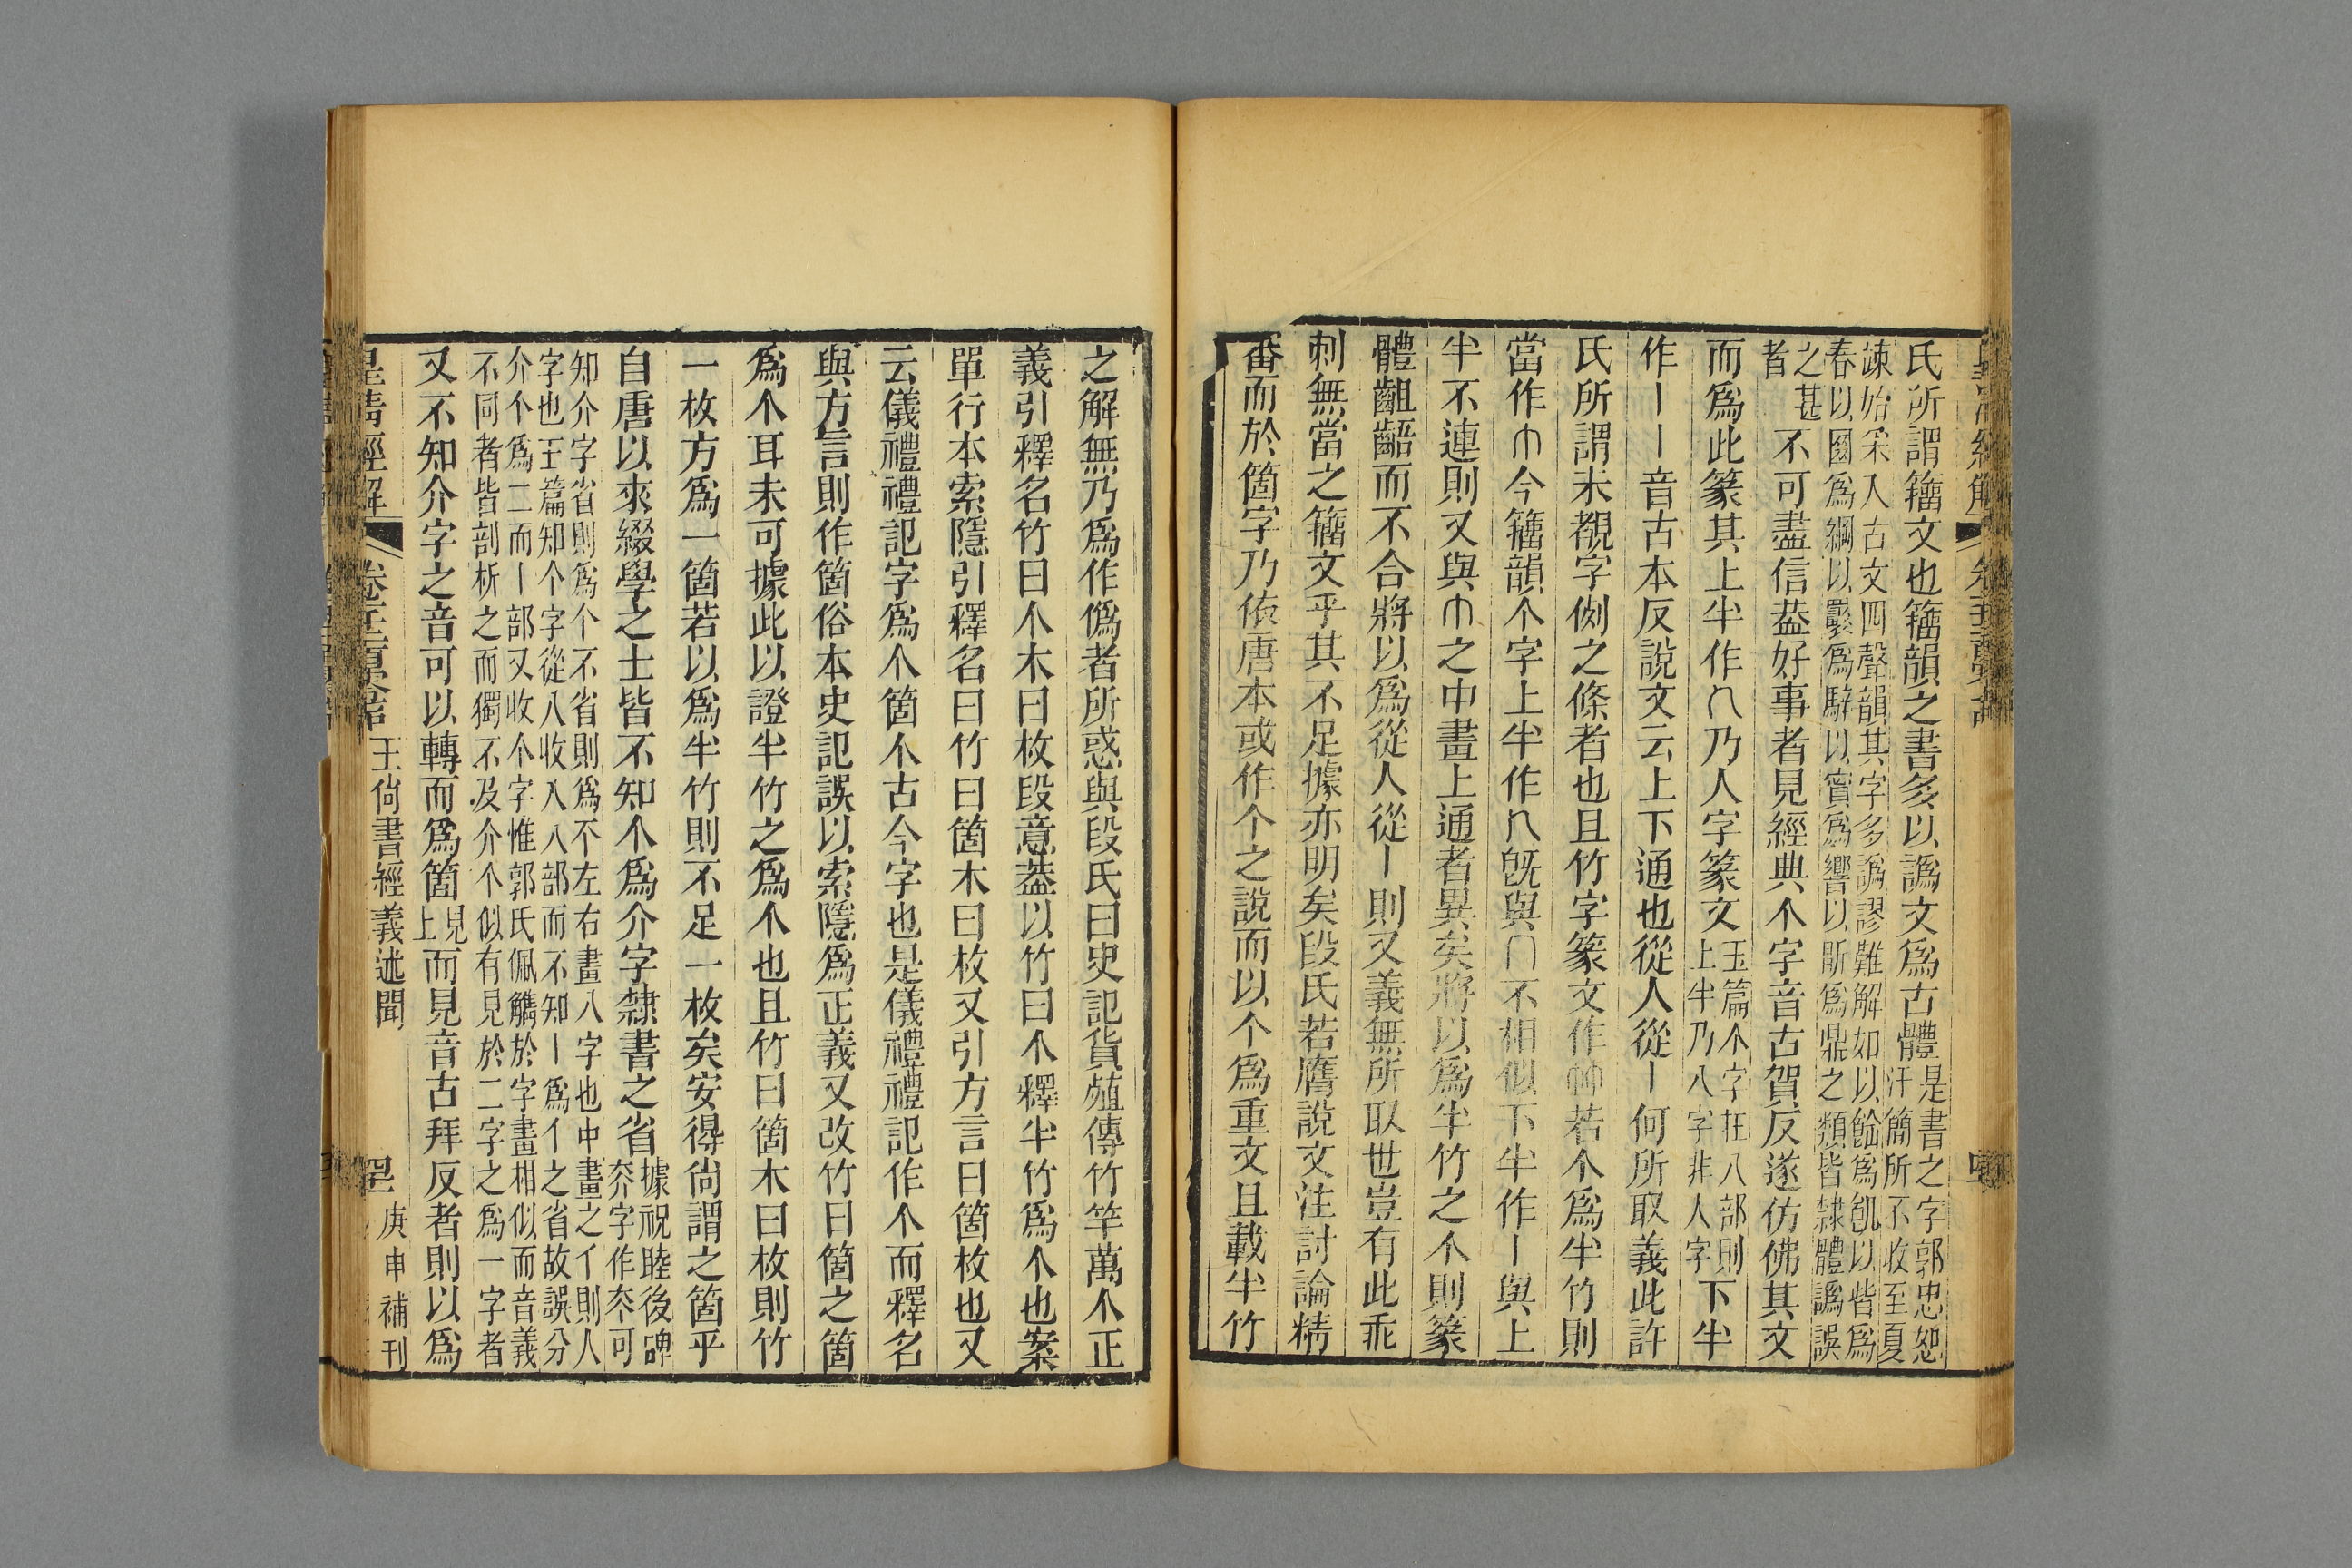 氏所謂籀文也籀韻之書多以譌文爲古體是書之字郭忠恕汗簡所不收至夏
竦始采入古文四聲韻其字多譌謬難解如以饀爲飢以喈爲
春以圂爲綱以爲騂以賓爲響以斸爲鼎之類皆隸體譌誤
之甚者不可盡信葢好事者見經典个字音古賀反遂仿佛其文
而爲此篆其上半作乃人字篆文玉篇个字在八部則上半乃八字非人字下半
作丨丨音古本反說文云上下通也從人從丨何所取義此許
氏所謂未覩字例之條者也且竹字篆文作若个爲半竹則
當作今籀韻个字上半作旣與不相似下半作丨與上
半不連則又與之中畫上通者異矣將以爲半竹之个則篆
體齟齬而不合將以爲從人從丨則又義無所取世豈有此乖
剌無當之籀文乎其不足據亦明矣段氏若膺說文注討論精
審而於箇字乃依唐本或作个之說而以个爲重文且載半竹
之解無乃爲作僞者所惑與段氏曰史記貨殖傳竹竿萬个正
義引釋名竹曰个木曰枚段意葢以竹曰个釋半竹爲个也案
單行本索隱引釋名曰竹曰箇木曰枚又引方言曰箇枚也又
云儀禮禮記字爲个箇个古今字也是儀禮禮記作个而釋名
與方言則作箇俗本史記誤以索隱爲正義又改竹曰箇之箇
爲个耳未可據此以證半竹之爲个也且竹曰箇木曰枚則竹
一枚方爲一箇若以爲半竹則不足一枚矣安得尙謂之箇乎
自唐以來綴學之士皆不知个爲介字隸書之省據祝睦後碑夵字作夲可
知介字省則爲个不省則爲不左右畫八字也中畫之亻則人
字也玉篇知个字從八收入八部而不知丨爲亻之省故誤分
介个爲二而丨部又收个字惟郭氏佩觿於字畫相似而音義
不同者皆剖析之而獨不及介个似有見於二字之爲一字者
又不知介字之音可以轉而爲箇見上而見音古拜反者則以爲
皇淸經解 卷 王尙書經義述聞 庚申補刊